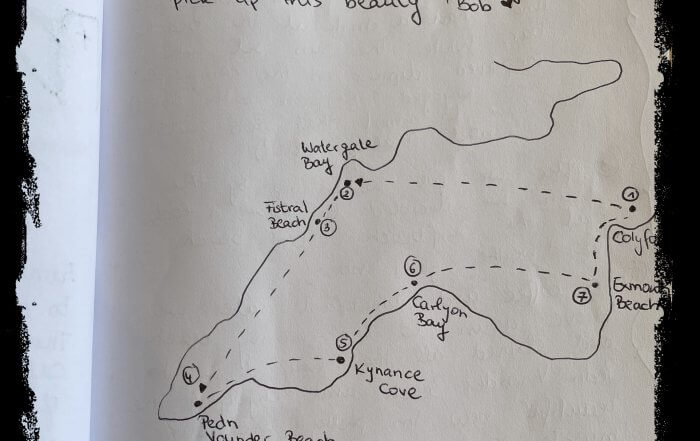 pick up this beauty "Bob"
Watergate
Bay
②
①
Fistral
Beach
③
Colyfo
⑥
⑦
Exmouth
Beach
Carlyon
Bay
⑤
④
Kynance
Cove
Pedn
Vounder Beach